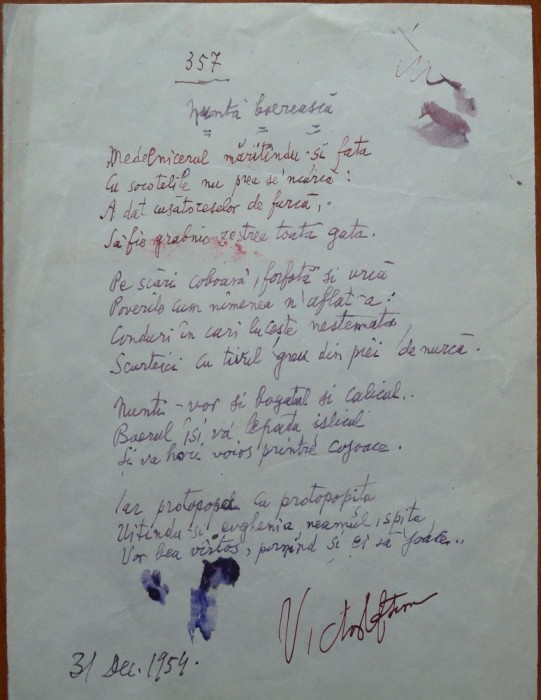 357
Nuntă boerească
Medelnicerul măritîndu-și fata
Cu socotelile nu prea se'ncurcă:
A dat cusătoreselor de furcă,
Să fie grabnic zestrea toată gata.
Pe scări coboară, forfotă și urcă
Poverile cum nimenea n'aflat-a:
Conduri în cari lucește nestemata,
Scurteici cu tivul greu din piei de nurcă.
Nunti-vor și bogatul și calicul..
Boerul își va lepăda islicul
Și va hori voios printre cojoace.
Iar protopopul cu protopopița
Uitîndu-și evghenia neamul, spița,
Vor bea vîrtos, pornind și ei să joace..
Victor Eftimiu
31 Dec. 1954.